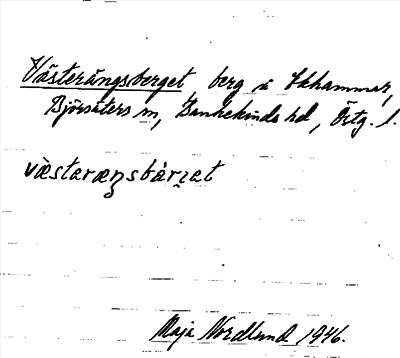 Västerängsberget berg å Ekhammar,
Björsäters sn, Bankekinds hd, Östg. l.
væ̀staræŋsbàrjat
Maja Nordlund 1946.